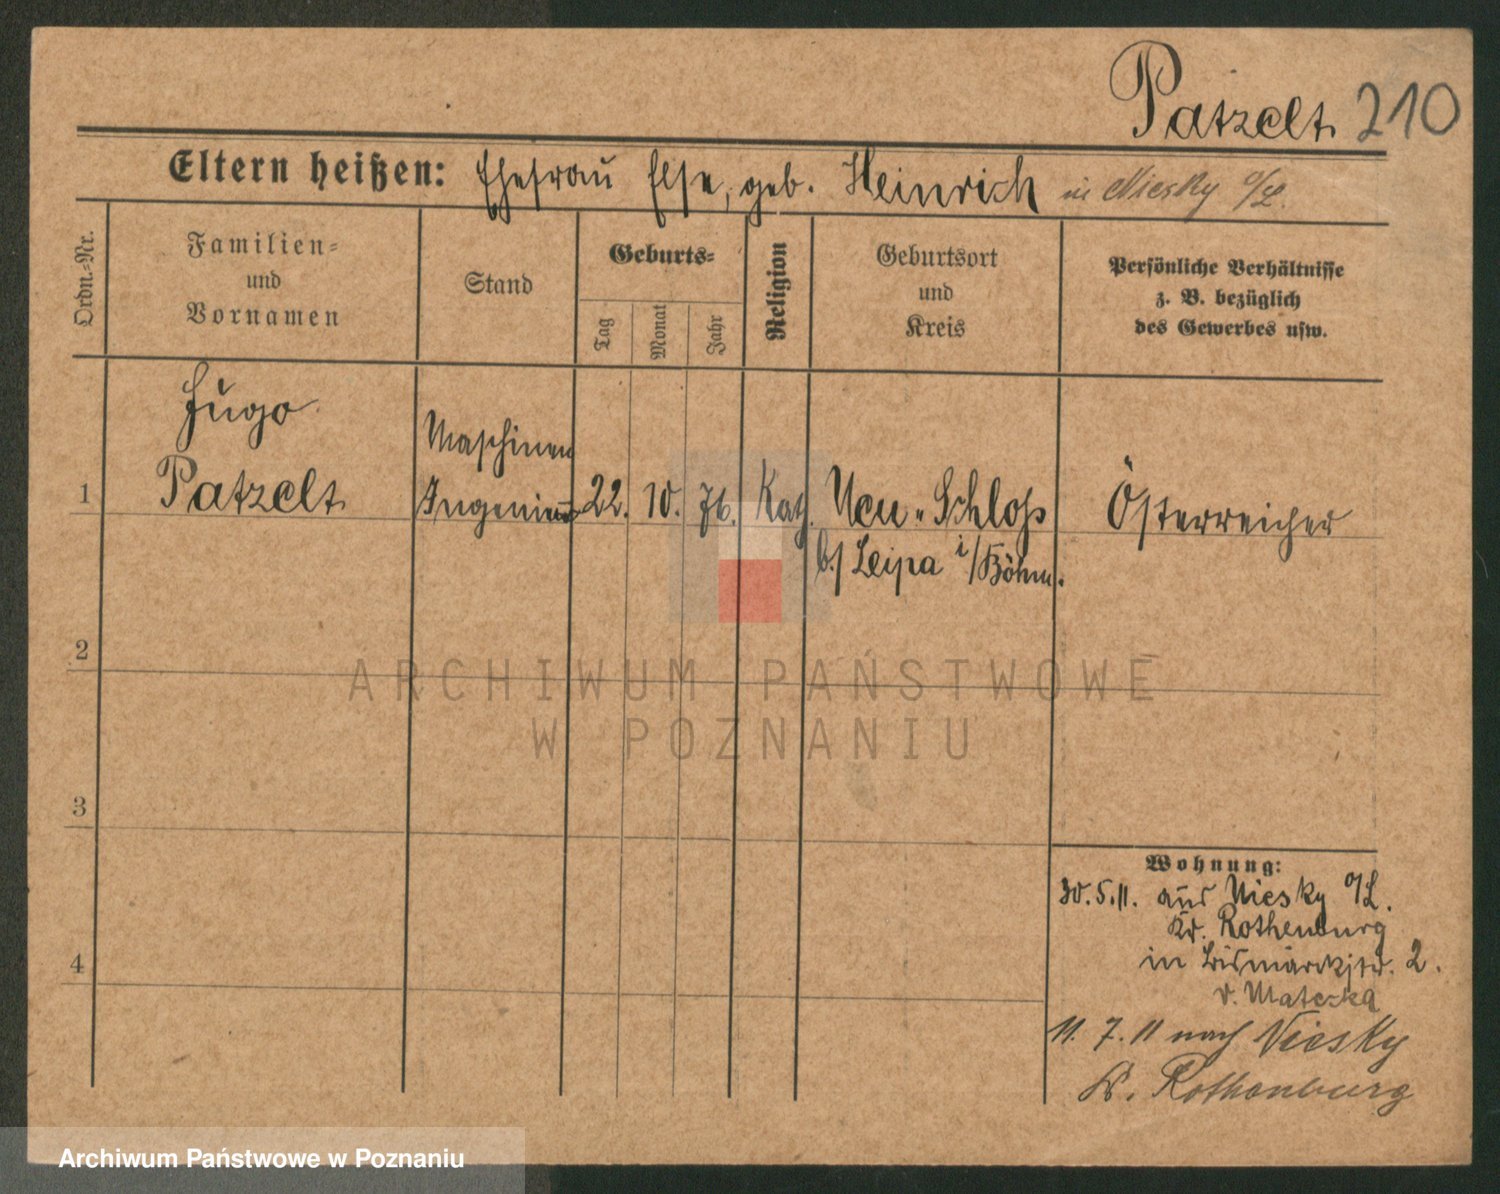 Patzelt. 210
Eltern heißen: Ehefrau Else, geb. Heinrich in Niesky O/L.
Ordn.-Nr.
Familien-
und
Vornamen
Stand
Geburts-
Tag
Monat
Jahr
Religion
Geburtsort
und
Kreis
Persönliche Verhältnisse
z. B. bezüglich
des Gewerbes usw.
Hugo
Maschinen
1 Patzelt Ingenieur 22. 10. 76. Kath. Neu-Schloß Österreicher
b./Leipa i/Böhm.
2
ARCHIWUM PAŃSTWOWE
W POZNANIU
3
Wohnung:
30.5.11. aus Niesky O/L.
Kr. Rothenburg
4 in Bismarckstr. 2.
b. Mateska
11. 7. 11 nach Niesky
Kr. Rothenburg
Archiwum Państwowe w Poznaniu